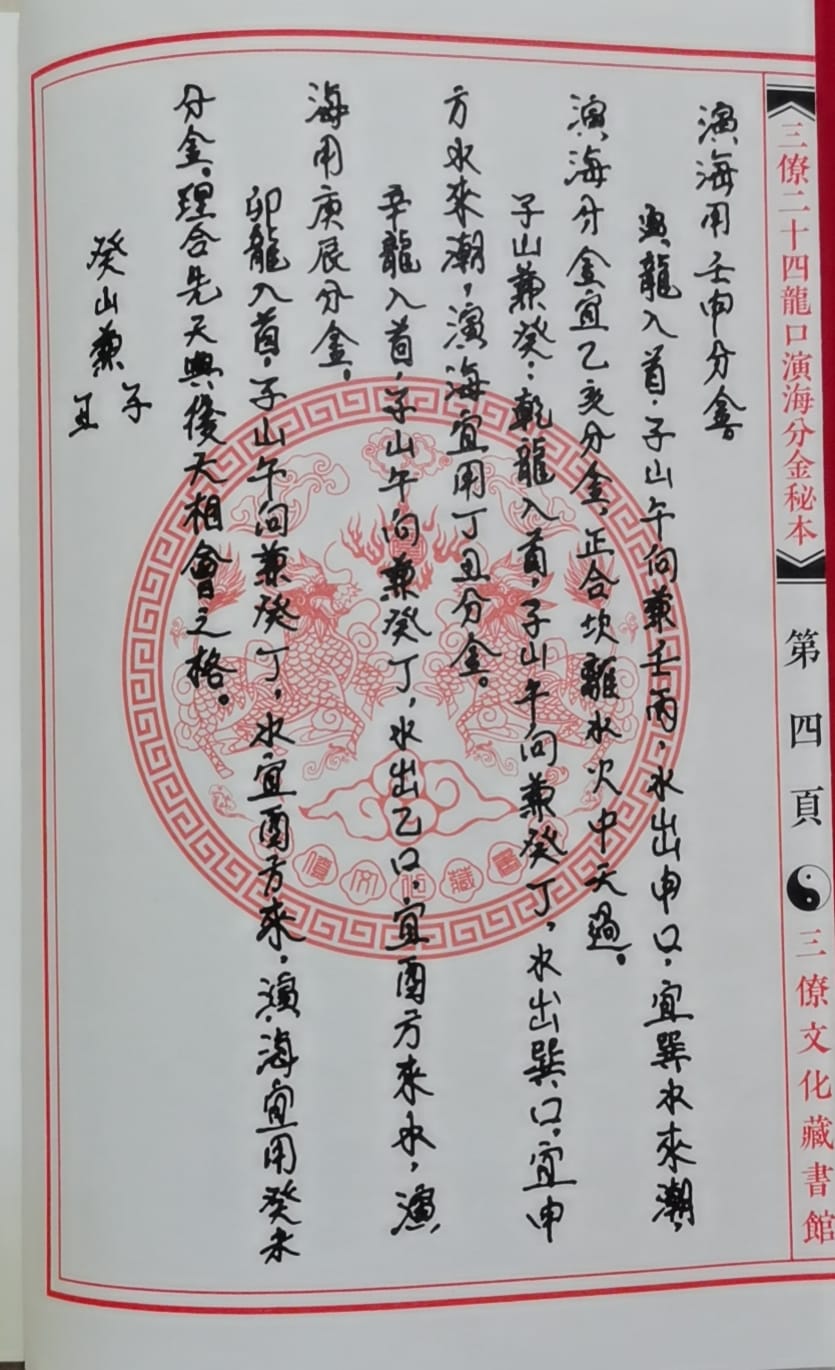 三僚二十四龍口演海分金秘本
第四頁
三僚文化藏書館
演海用壬申分金
龍入首，子山午向兼壬丙，水出申口，宜巽水來潮，
演海分金宜乙亥分金，正合坎離水火中天過。
子山兼癸：乾龍入首，子山午向兼癸丁，水出巽口，宜申
方水來潮，演海宜用丁丑分金。
辛龍入首，子山午向兼癸丁，水出乙口，宜酉方來水，演
海用庚辰分金。
卯龍入首，子山午向兼癸丁，水宜酉方來，演海宜用癸未
分金。理合先天與後天相會之格。
癸山兼子丑